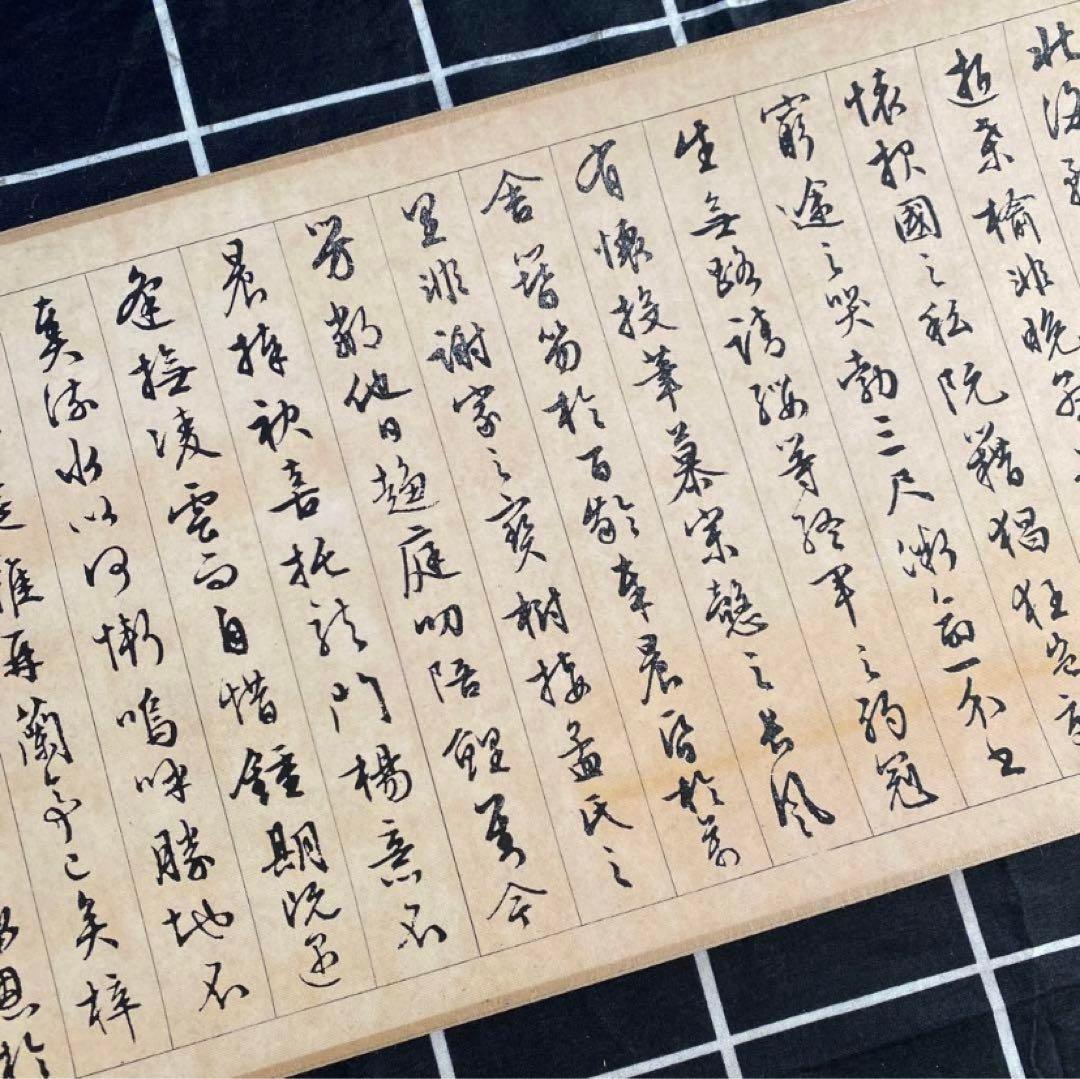 北海雖
逝桑榆非晚孟
懷報國之私阮籍猖狂豈效
窮途之哭勃三尺微命一介書
生無路請纓等終軍之弱冠
有懷投筆慕宗愨之長風
舍簪笏於百齡奉晨昏於萬
里非謝家之寶樹接孟氏之
芳鄰他日趨庭叨陪鯉對今
晨捧袂喜托龍門楊意不
逢撫凌雲而自惜鍾期既遇
奏流水以何慚嗚呼勝地不
筵難再蘭亭已矣梓
恩於